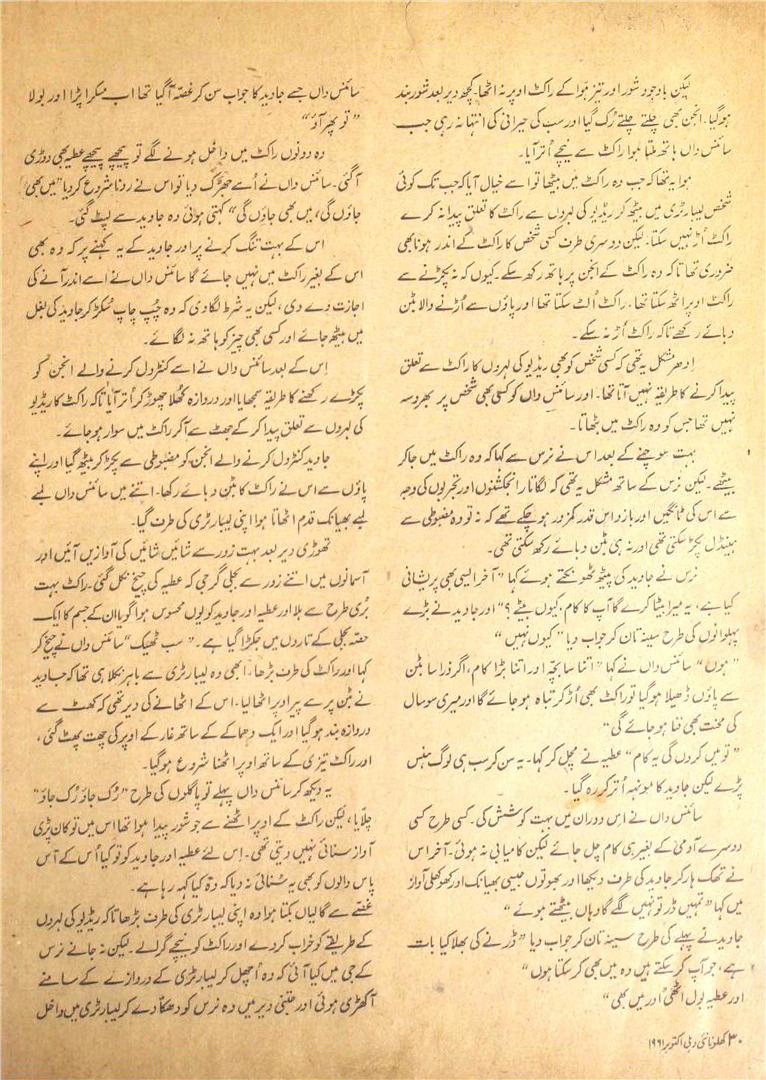 لیکن باوجود شور اور تیز ہوا کے راکٹ اوپر نہ اٹھا۔ کچھ دیر بعد شور بند
ہوگیا۔ انجن بھی چلتے چلتے رُک گیا اور سب کی حیرانی کی انتہا نہ رہی جب
سائنس داں ہاتھ ملتا ہوا راکٹ سے نیچے اُتر آیا۔
ہوا یہ تھا کہ جب وہ راکٹ میں بیٹھا تو اسے خیال آیا کہ جب تک کوئی
شخص لیبارٹری میں بیٹھ کر ریڈیو کی لہروں سے راکٹ کا تعلق پیدا نہ کرے
راکٹ اُڑ نہیں سکتا۔ لیکن دوسری طرف کسی شخص کا راکٹ کے اندر ہونا بھی
ضروری تھا تاکہ وہ راکٹ کے انجن پر ہاتھ رکھ سکے۔ کیوں کہ نہ پکڑنے سے
راکٹ اوپر اٹھ سکتا تھا۔ راکٹ اُلٹ سکتا تھا اور پاؤں سے اُڑنے والا بٹن
دبائے رکھے تاکہ راکٹ اُڑ نہ سکے۔
اِدھر مشکل یہ تھی کہ کسی شخص کو بھی ریڈیو کی لہروں کا راکٹ سے تعلق
پیدا کرنے کا طریقہ نہیں آتا تھا۔ اور سائنس داں کو کسی بھی شخص پر بھروسہ
نہیں تھا جس کو وہ راکٹ میں بٹھاتا۔
بہت سوچنے کے بعد اس نے نرس سے کہا کہ وہ راکٹ میں جاکر
بیٹھے۔ لیکن نرس کے ساتھ مشکل یہ تھی کہ لگاتار انجکشنوں اور تجربوں کی وجہ
سے اس کی ٹانگیں اور بازو اس قدر کمزور ہوچکے تھے کہ نہ تو وہ مضبوطی سے
ہینڈل پکڑ سکتی تھی اور نہ ہی بٹن دبائے رکھ سکتی تھی۔
نرس نے جاوید کی پیٹھ ٹھونکتے ہوئے کہا ”آخر ایسی بھی پریشانی
کیا ہے، یہ میرا بیٹا کرے گا آپ کا کام، کیوں بیٹے؟“ اور جاوید نے بڑے
پہلوانوں کی طرح سینہ تان کر جواب دیا ”کیوں نہیں“
”ہوں“ سائنس داں نے کہا ”اتنا سا بچہ اور اتنا بڑا کام، اگر ذرا سا بٹن
سے پاؤں ڈھیلا ہوگیا تو راکٹ بھی اُڑ کر تباہ ہو جائے گا اور میری سو سال
کی محنت بھی فنا ہو جائے گی“
”تو میں کروں گی یہ کام“ عطیہ نے مچل کر کہا۔ یہ سن کر سب ہی لوگ ہنس
پڑے لیکن جاوید کا مونہہ اُتر کر رہ گیا۔
سائنس داں نے اس دوران میں بہت کوشش کی۔ کسی طرح کسی
دوسرے آدمی کے بغیر ہی کام چل جائے لیکن کامیابی نہ ہوئی۔ آخر اس
نے تھک ہار کر جاوید کی طرف دیکھا اور بھوتوں جیسی بھیانک اور کھوکھلی آواز
میں کہا ”تمہیں ڈر تو نہیں لگے گا وہاں بیٹھتے ہوئے“
جاوید نے پہلے کی طرح سینہ تان کر جواب دیا ”ڈرنے کی بھلا کیا بات
ہے، جو آپ کرسکتے ہیں وہ میں بھی کرسکتا ہوں“
اور عطیہ بول اٹھی ”اور میں بھی“
سائنس داں جسے جاوید کا جواب سن کر غصّہ آگیا تھا اب مسکرا پڑا اور بولا
”تو پھر آؤ“
وہ دونوں راکٹ میں داخل ہونے لگے تو پیچھے پیچھے عطیہ بھی دوڑی
آگئی۔ سائنس داں نے اُسے جھڑک دیا تو اس نے رونا شروع کردیا ”میں بھی
جاؤں گی، میں بھی جاؤں گی“ کہتی ہوئی وہ جاوید سے لپٹ گئی۔
اس کے بہت تنگ کرنے پر اور جاوید کے یہ کہنے پر کہ وہ بھی
اس کے بغیر راکٹ میں نہیں جائے گا سائنس داں نے اسے اندر آنے کی
اجازت دے دی، لیکن یہ شرط لگا دی کہ وہ چپ چاپ سُکڑ کر جاوید کی بغل
میں بیٹھ جائے اور کسی بھی چیز کو ہاتھ نہ لگائے۔
اِس کے بعد سائنس داں نے اسے کنٹرول کرنے والے انجن کو
پکڑے رکھنے کا طریقہ سمجھایا اور دروازہ کُھلا چھوڑ کر اُتر آیا تاکہ راکٹ کا ریڈیو
کی لہروں سے تعلق پیدا کرکے جھٹ سے آکر راکٹ میں سوار ہو جائے۔
جاوید کنٹرول کرنے والے انجن کو مضبوطی سے پکڑ کر بیٹھ گیا اور اپنے
پاؤں سے اس نے راکٹ کا بٹن دبائے رکھا۔ اتنے میں سائنس داں لمبے
لمبے بھیانک قدم اٹھاتا ہوا اپنی لیبارٹری کی طرف گیا۔
تھوڑی دیر بعد بہت زور سے شائیں شائیں کی آوازیں آئیں اور
آسمانوں میں اتنے زور سے بجلی گرجی کہ عطیہ کی چیخ نکل گئی۔ راکٹ بہت
بُری طرح سے ہلا اور عطیہ اور جاوید کو یوں محسوس ہوا گویا ان کے جسم کا ایک
حصّہ بجلی کے تاروں میں جکڑا گیا ہے۔ ”سب ٹھیک“ سائنس داں نے چیخ کر
کہا اور راکٹ کی طرف بڑھا۔ ابھی وہ لیبارٹری سے باہر نکلا ہی تھا کہ جاوید
نے بٹن پر سے پیر اوپر اٹھا لیا۔ اس کے اٹھانے کی دیر تھی کہ کھٹ سے
دروازہ بند ہوگیا اور ایک دھماکے کے ساتھ غار کے اوپر کی چھت پھٹ گئی،
اور راکٹ تیزی کے ساتھ اوپر اٹھنا شروع ہوگیا۔
یہ دیکھ کر سائنس داں پہلے تو پاگلوں کی طرح ”رُک جاؤ رُک جاؤ“
چلّایا، لیکن راکٹ کے اوپر اٹھنے سے جو شور پیدا ہوا تھا اس میں تو کان پڑی
آواز سنائی نہیں دیتی تھی۔ اِس لئے عطیہ اور جاوید کو تو کیا اُس کے آس
پاس والوں کو بھی یہ سُنائی نہ دیا کہ وہ کیا کہہ رہا ہے۔
غصّے سے گالیاں بکتا ہوا وہ اپنی لیبارٹری کی طرف بڑھا تاکہ ریڈیو کی لہروں
کے طریقے کو خراب کردے اور راکٹ کو نیچے گرالے۔ لیکن نہ جانے نرس
کے جی میں کیا آئی کہ وہ اُچھل کر لیبارٹری کے دروازے کے سامنے
آکھڑی ہوئی اور جتنی دیر میں وہ نرس کو دھکّا دے کر لیبارٹری میں داخل
۳۰ کھلونا نئی دہلی اکتوبر ۱۹۶۱ء